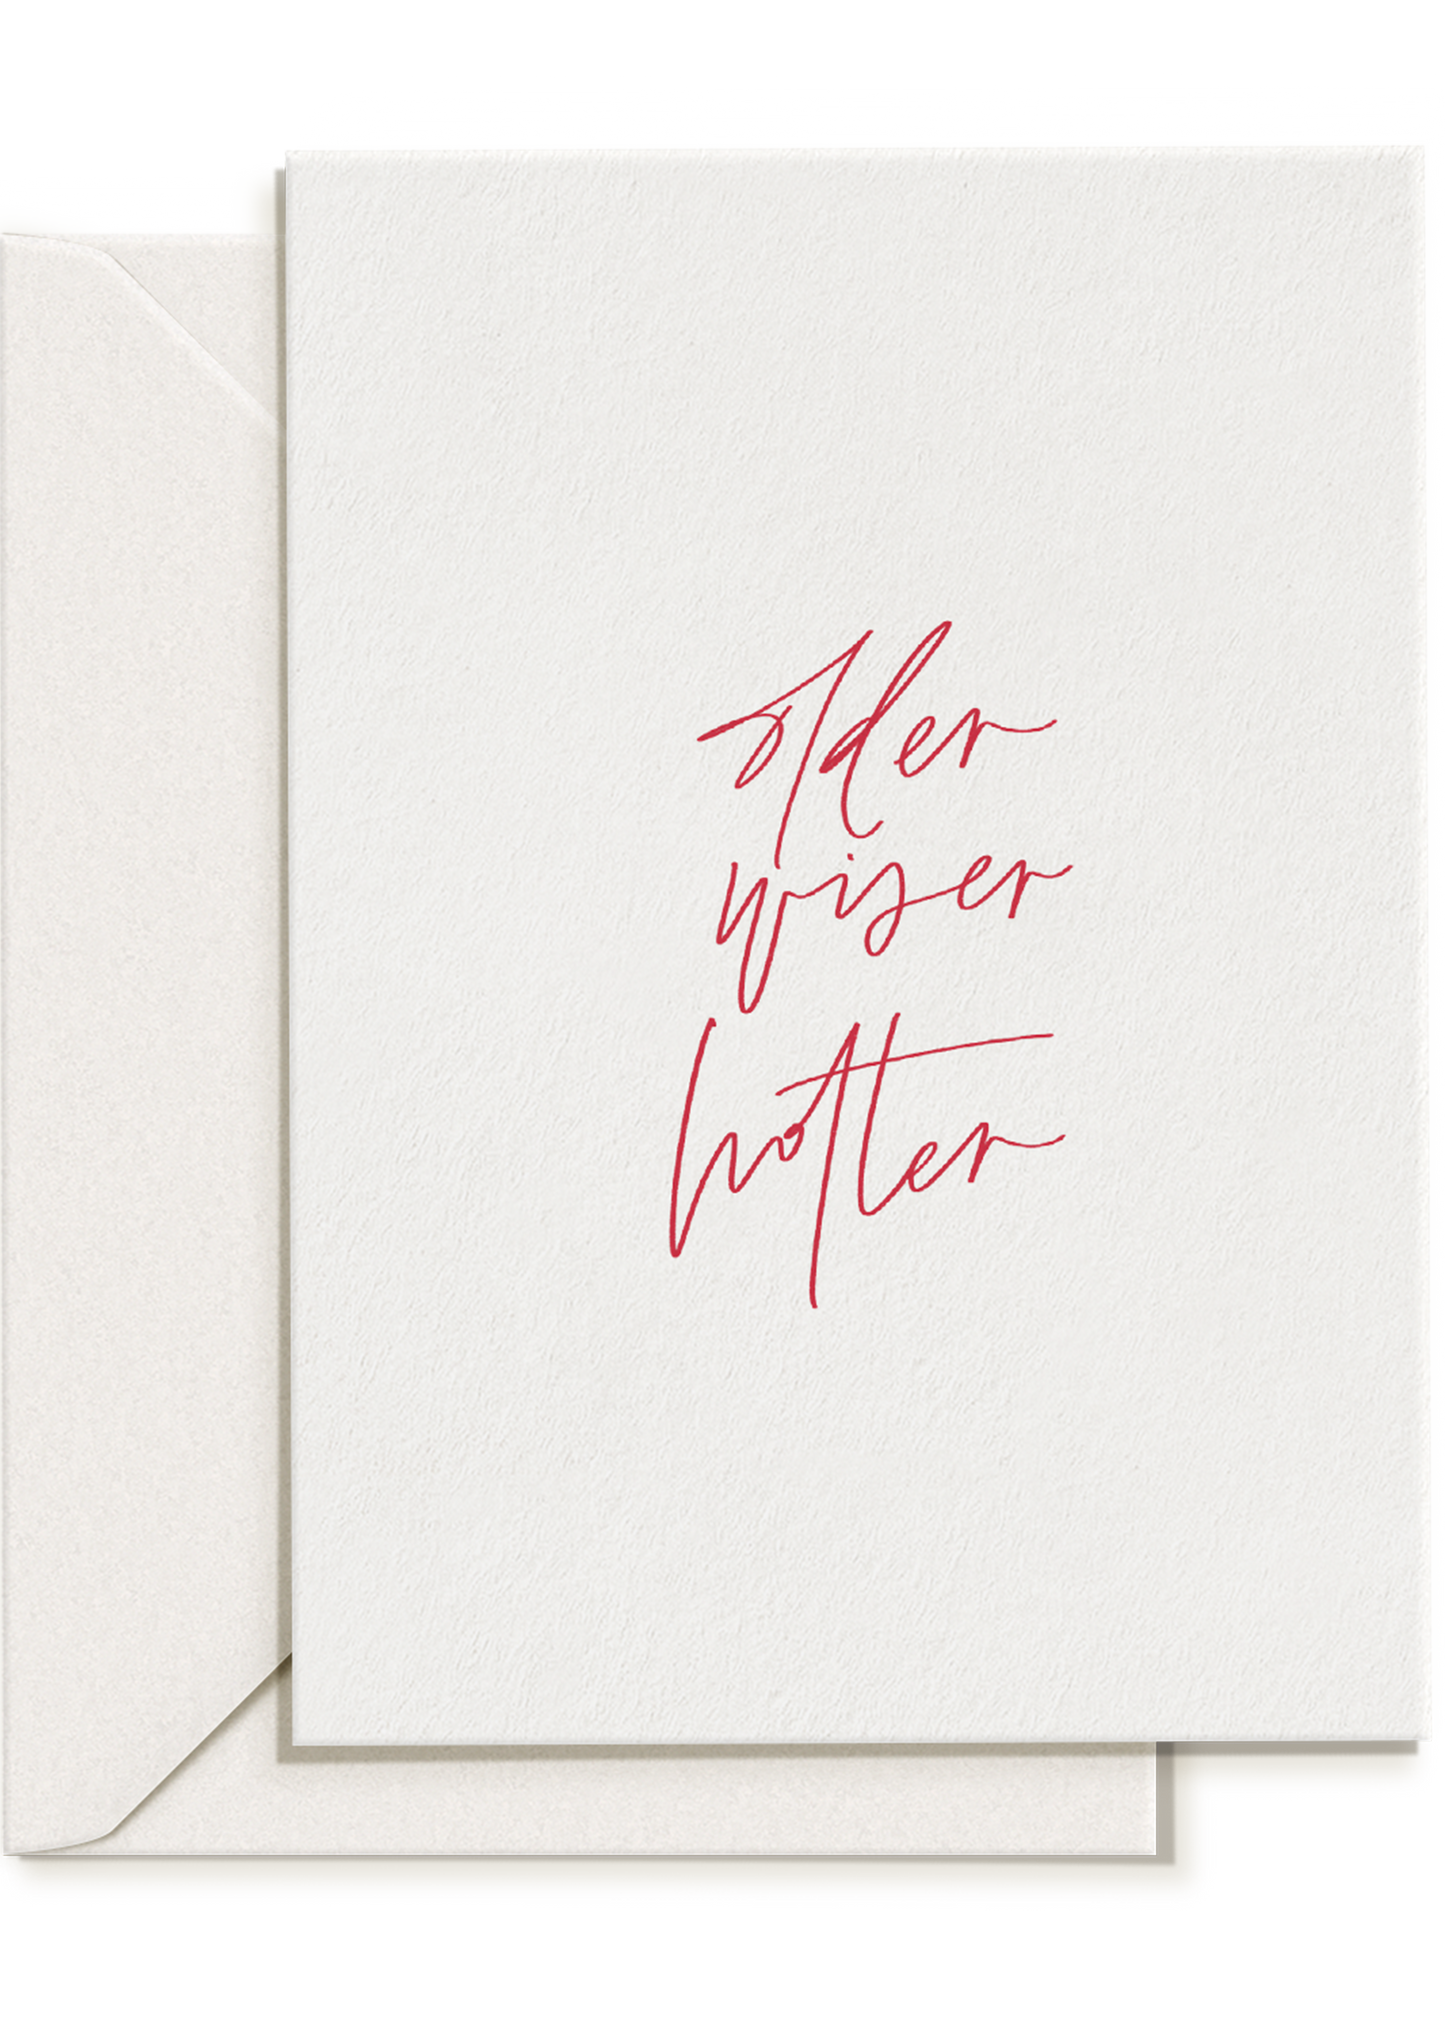 older
wiser
hotter